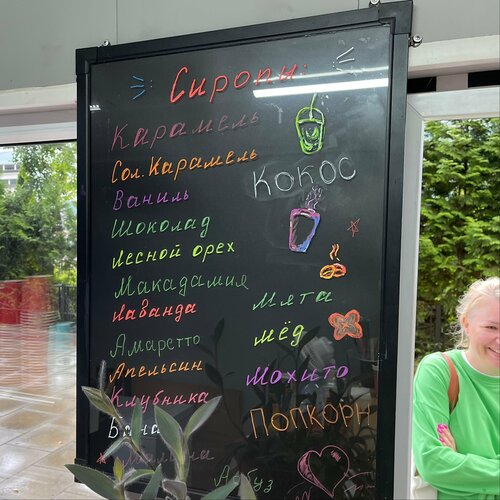 Сиропы:
Карамель
Сол. Карамель
Ваниль
Шоколад
Лесной орех
Макадамия
Лаванда
Амаретто
Апельсин
Клубника
Малина
Кокос
Мята
Мёд
Мохито
Попкорн
Арбуз